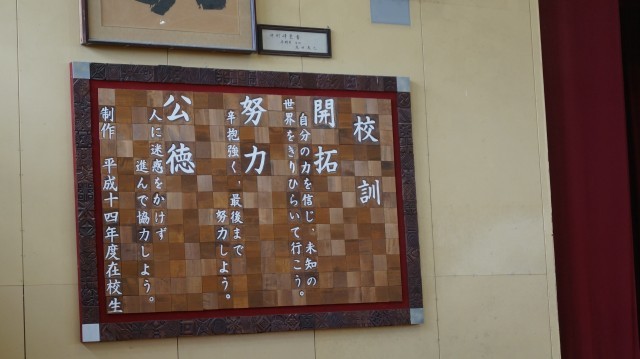 校訓
開拓
自分の力を信じ、未知の
世界をきりひらいて行こう。
努力
辛抱強く、最後まで
努力しよう。
公徳
人に迷惑をかけず
進んで協力しよう。
制作 平成十四年度在校生